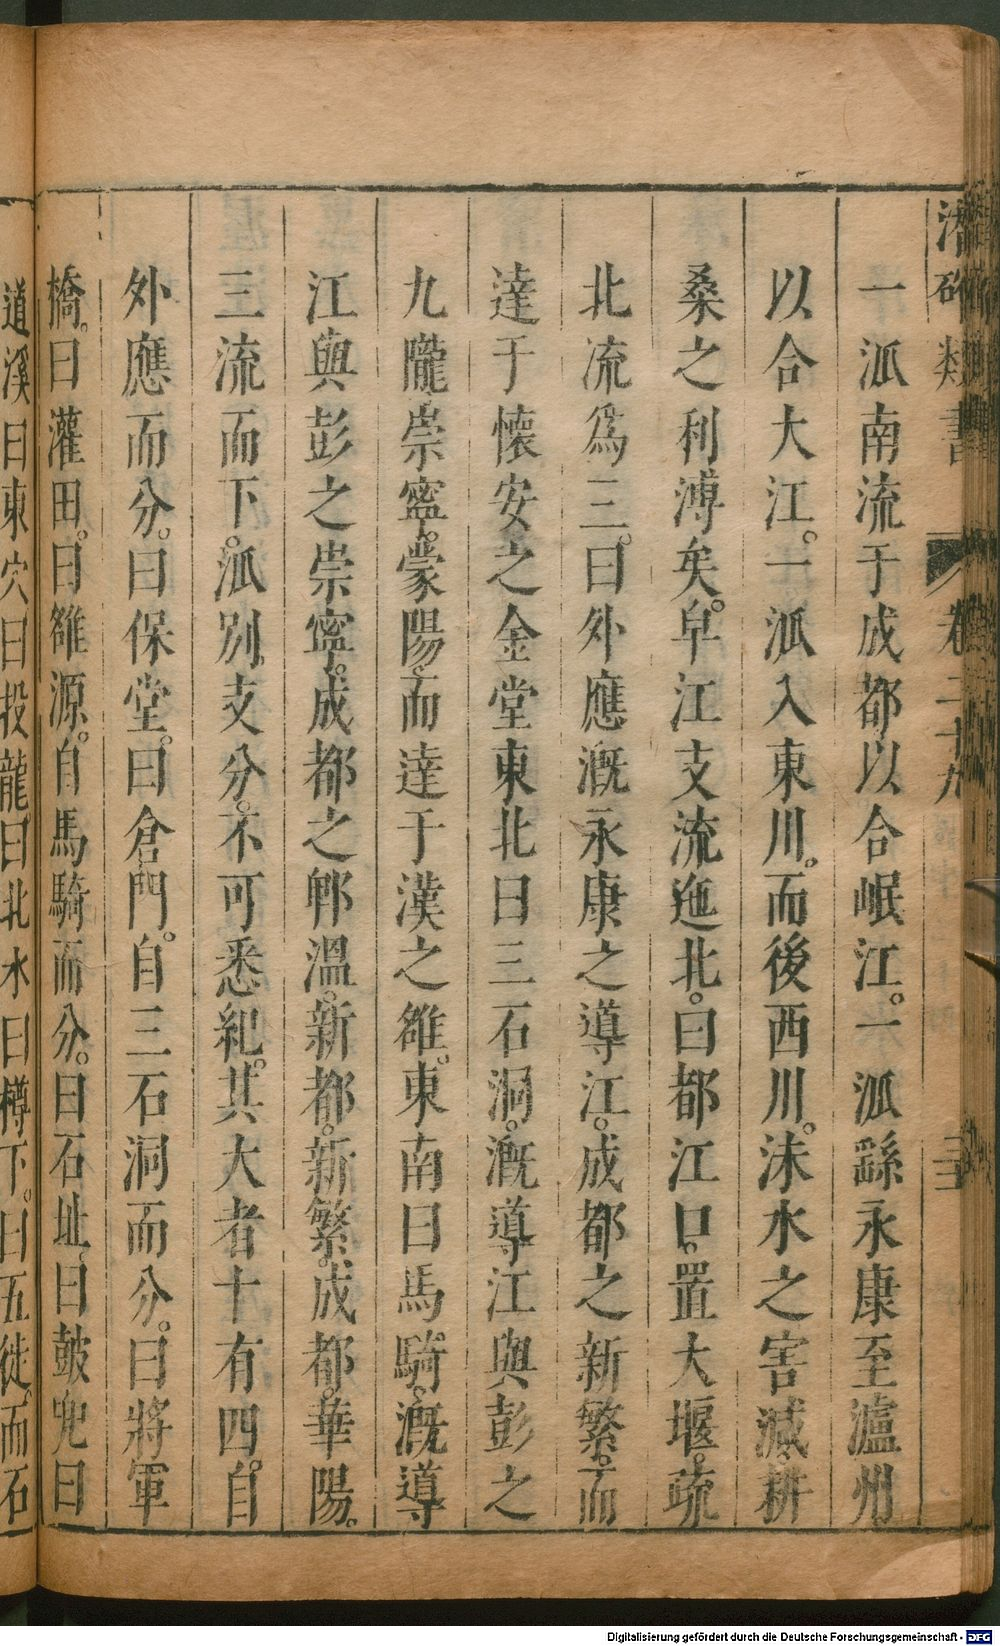 潛確類書 卷二十九 三
一泒南流于成都以合岷江。一泒繇永康至瀘州
以合大江。一泒入東川。而後西川。沫水之害減。耕
桑之利溥矣。皁江支流迤北。曰都江口。置大堰。疏
北流爲三。曰外應漑永康之導江。成都之新繁。而
達于懷安之金堂東北曰三石洞。漑導江與彭之
九隴崇寧。蒙陽。而達于漢之雒。東南曰馬騎。漑導
江與彭之崇寧。成都之郫溫。新都。新繁。成都。華陽。
三流而下。泒別。支分。不可悉紀。其大者十有四。自
外應而分。曰保堂。曰倉門。自三石洞而分。曰將軍
橋。曰灌田。曰雒源。自馬騎而分。曰石址。曰豉兜曰
道溪曰東穴曰投龍曰北水曰樽下。曰五徙。而石
Digitalisierung gefördert durch die Deutsche Forschungsgemeinschaft - DFG